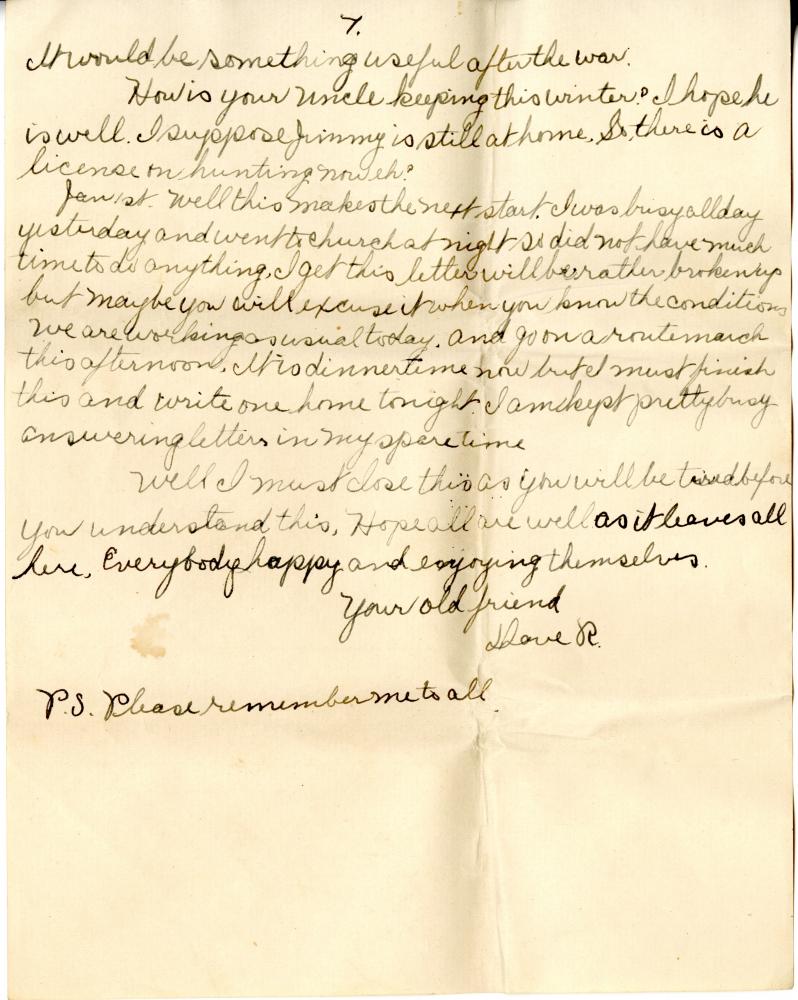 7.
It would be something useful after the war.
How is your Uncle keeping this winter? I hope he
is well. I suppose Jimmy is still at home. So there is a
license on hunting now eh?
Jan 1st. Well this makes the next start. I was busy all day
yesterday and went to church at night so did not have much
time to do anything. I get this letter will be rather broken up
but maybe you will excuse it when you know the conditions
We are working as usual today. and go on a route march
this afternoon. It is dinner time now but I must finish
this and write one home tonight. I am kept pretty busy
answering letters in my spare time
Well I must close this as you will be tired before
you understand this. Hope all are well as it leaves all
here. Everybody happy and enjoying themselves.
Your old friend
Dave R.
P.S. Please remember me to all.